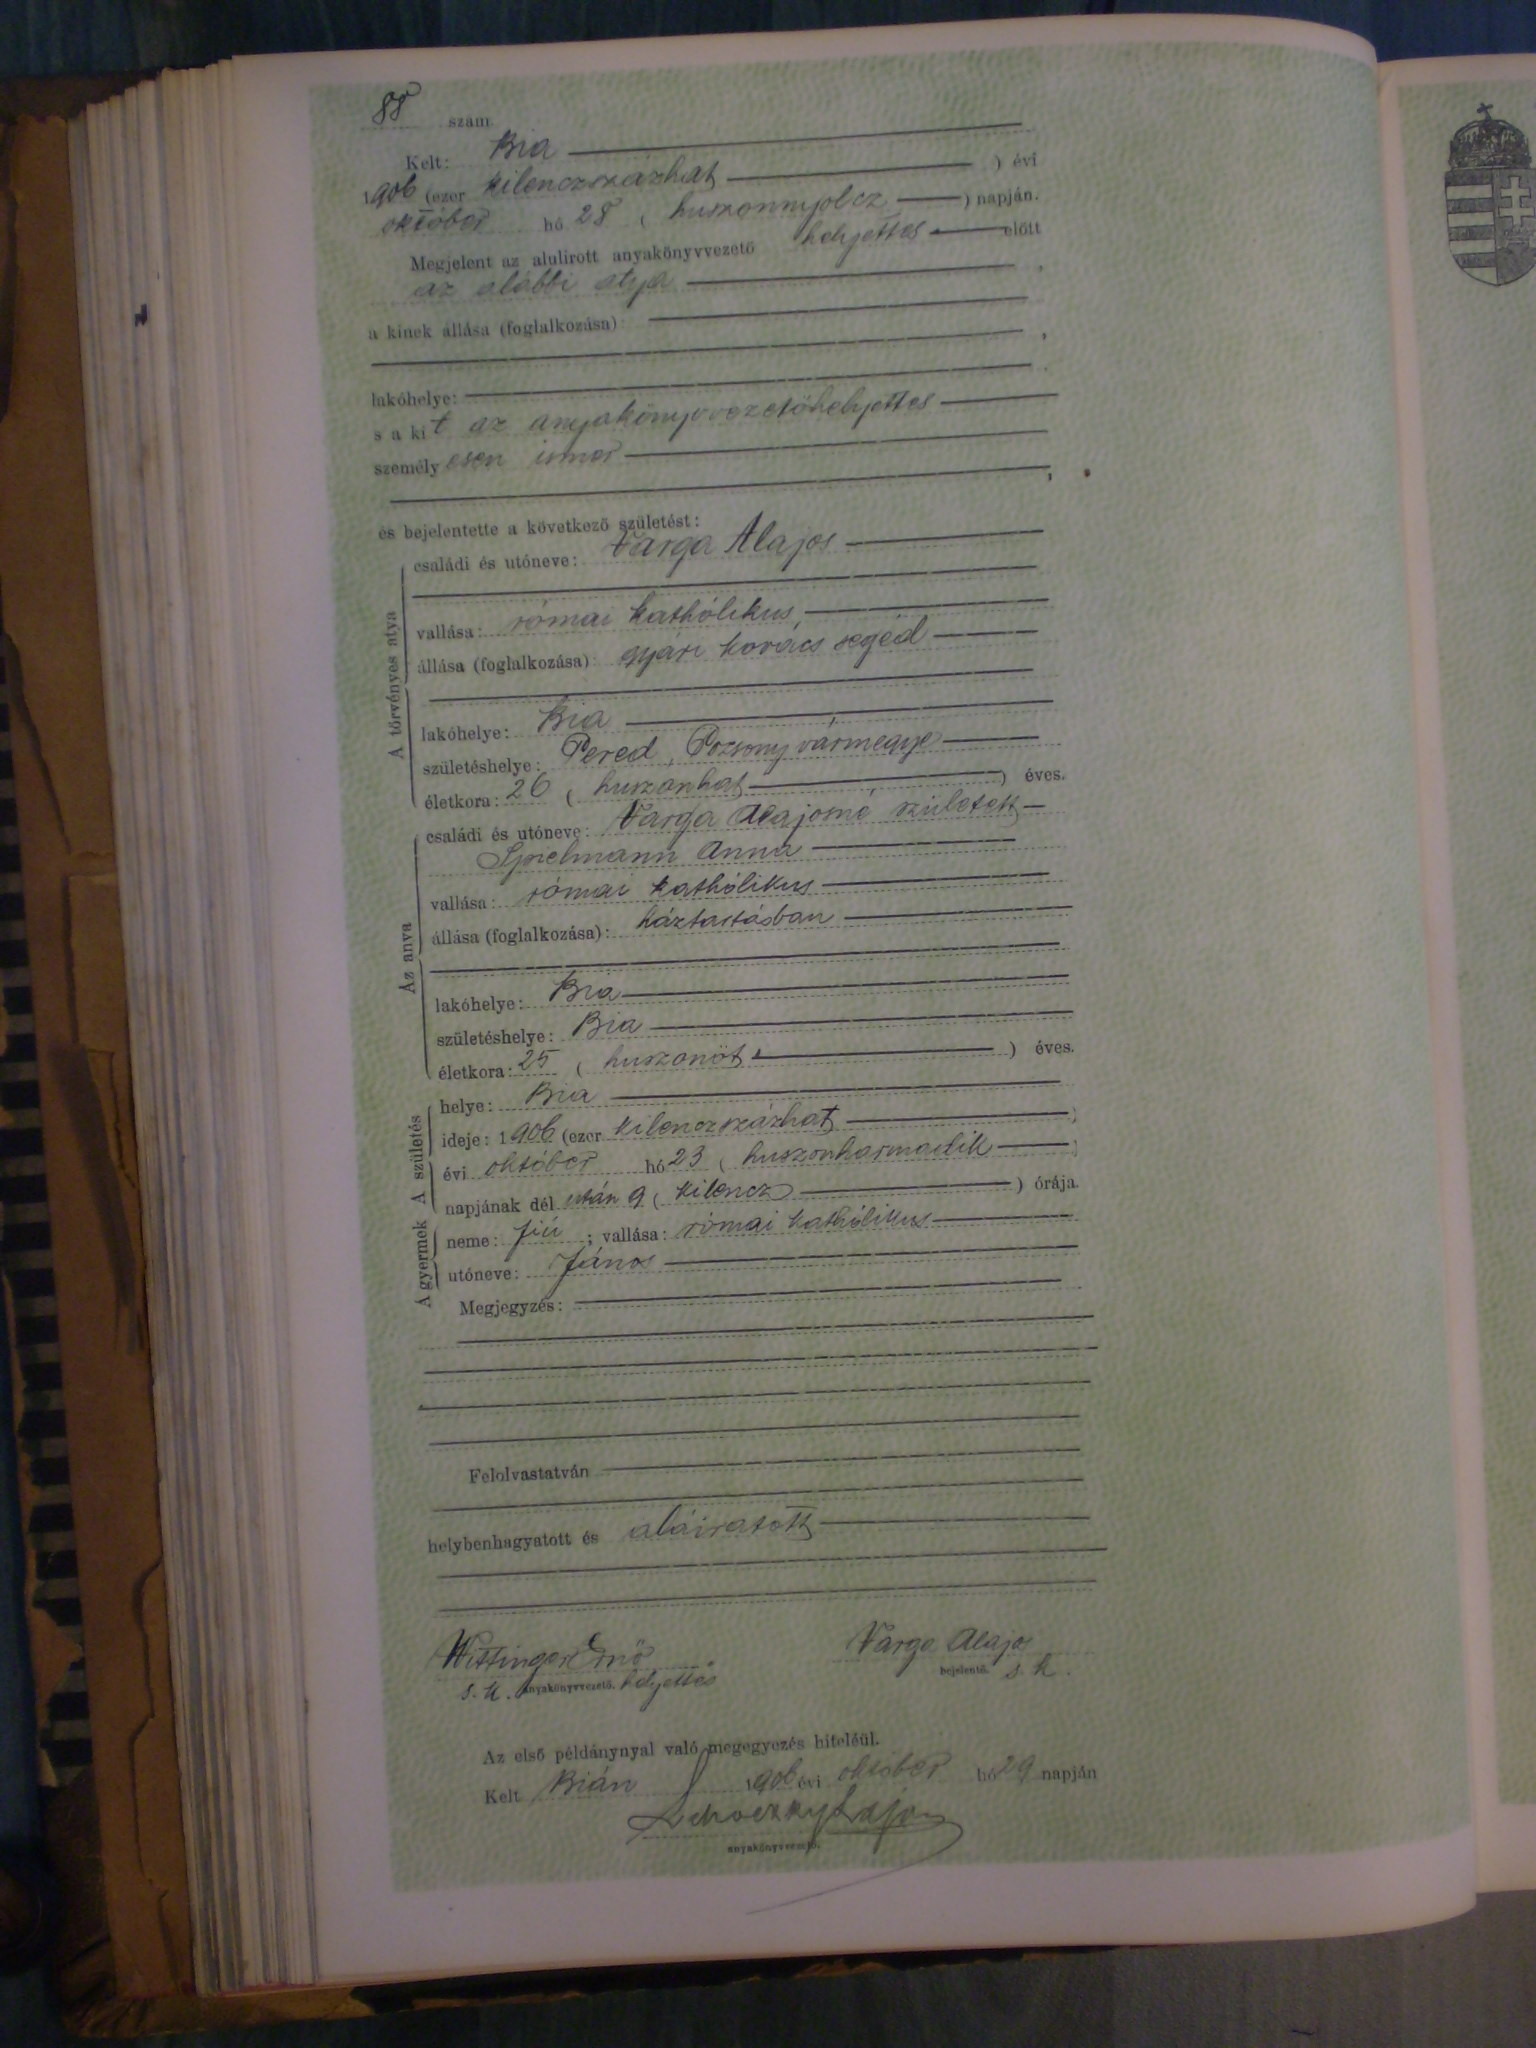 88 szám
Kelt: Bia
1906 (ezer kilenczszázhat ) évi
október hó 28 ( huszonnyolcz ) napján.
Megjelent az alulirott anyakönyvvezető helyettes előtt
az alábbi atya ,
a kinek állása (foglalkozása):
,
lakóhelye: .
s a kit az anyakönyvvezetőhelyettes
személyesen ismer
,
és bejelentette a következő születést:
A törvényes atya
családi és utóneve: Varga Alajos
vallása: római kathólikus
állása (foglalkozása): gyári kovács segéd
lakóhelye: Bia
születéshelye: Pered, Pozsony vármegye
életkora: 26 ( huszonhat ) éves.
Az anya
családi és utóneve: Varga Alajosné született
Spielmann Anna
vallása: római kathólikus
állása (foglalkozása): háztartásban
lakóhelye: Bia
születéshelye: Bia
életkora: 25 ( huszonöt ) éves.
A születés
helye: Bia
ideje: 1906 (ezer kilenczszázhat )
évi október hó 23 ( huszonharmadik )
napjának dél után 9 ( kilencz ) órája.
A gyermek
neme: fiú ; vallása: római kathólikus
utóneve: János
Megjegyzés:
Felolvastatván
helybenhagyatott és aláiratott
Wittinger Ernő Varga Alajos
s. k. anyakönyvvezető. helyettes bejelentő. s. k.
Az első példánynyal való megegyezés hiteléül.
Kelt Bián 1906 évi október hó 29 napján
Lajos
anyakönyvvezető.